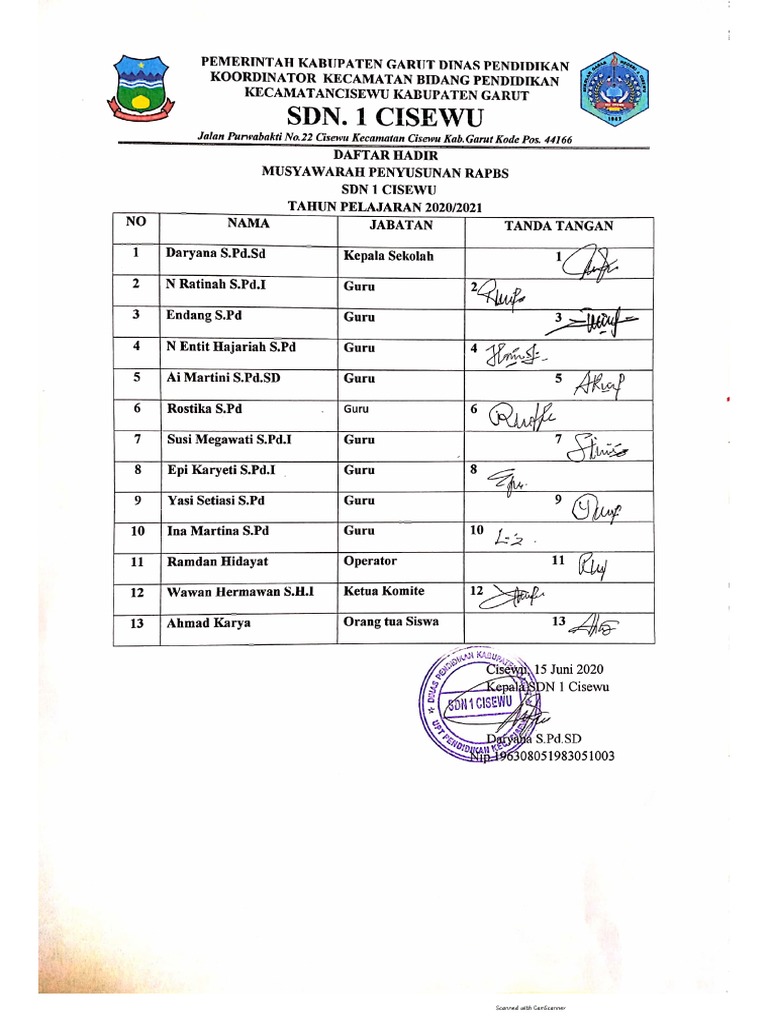 PEMERINTAH KABUPATEN GARUT DINAS PENDIDIKAN
KOORDINATOR KECAMATAN BIDANG PENDIDIKAN
KECAMATANCISEWU KABUPATEN GARUT
SDN. 1 CISEWU
Jalan Purwabakti No.22 Cisewu Kecamatan Cisewu Kab.Garut Kode Pos. 44166
DAFTAR HADIR
MUSYAWARAH PENYUSUNAN RAPBS
SDN 1 CISEWU
TAHUN PELAJARAN 2020/2021
NO NAMA JABATAN TANDA TANGAN
1 Daryana S.Pd.Sd Kepala Sekolah 1
2 N Ratinah S.Pd.I Guru 2
3 Endang S.Pd Guru 3
4 N Entit Hajariah S.Pd Guru 4
5 Ai Martini S.Pd.SD Guru 5
6 Rostika S.Pd Guru 6
7 Susi Megawati S.Pd.I Guru 7
8 Epi Karyeti S.Pd.I Guru 8
9 Yasi Setiasi S.Pd Guru 9
10 Ina Martina S.Pd Guru 10
11 Ramdan Hidayat Operator 11
12 Wawan Hermawan S.H.I Ketua Komite 12
13 Ahmad Karya Orang tua Siswa 13
Cisewu, 15 Juni 2020
Kepala SDN 1 Cisewu
DINAS PENDIDIKAN KABUPATEN
SDN 1 CISEWU
UPT PENDIDIKAN
Daryana S.Pd.SD
Nip.196308051983051003
Scanned with CamScanner